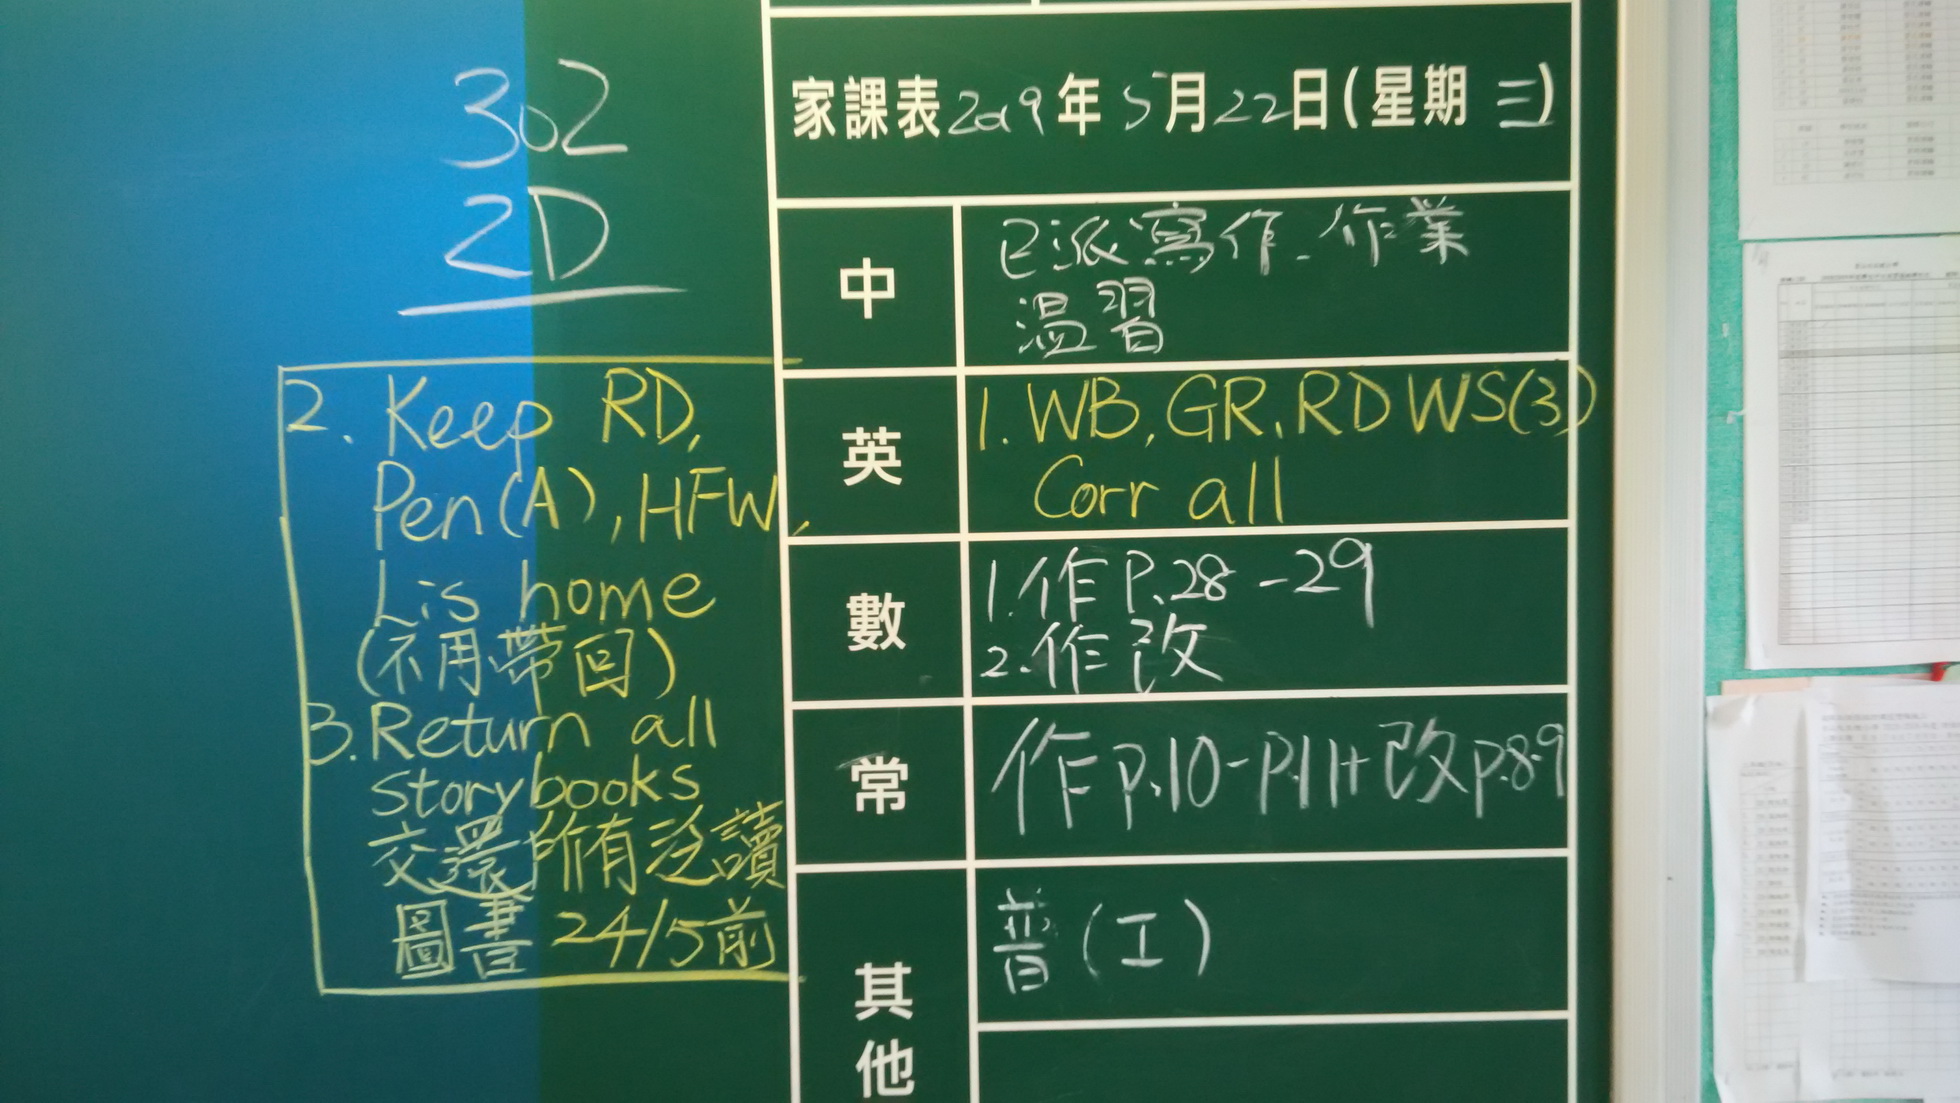 302
2D
家課表2019年5月22日(星期三)
中
已派寫作、作業
温習
英
1. WB, GR, RD WS(3)
Corr all
2. Keep RD,
Pen(A), HFW,
Lis home
(不用帶回)
3. Return all
storybooks
交還所有泛讀
圖書 24/5前
數
1.作P.28-29
2.作改
常
作p.10-P.11+改p.8-9
其他
普(工)